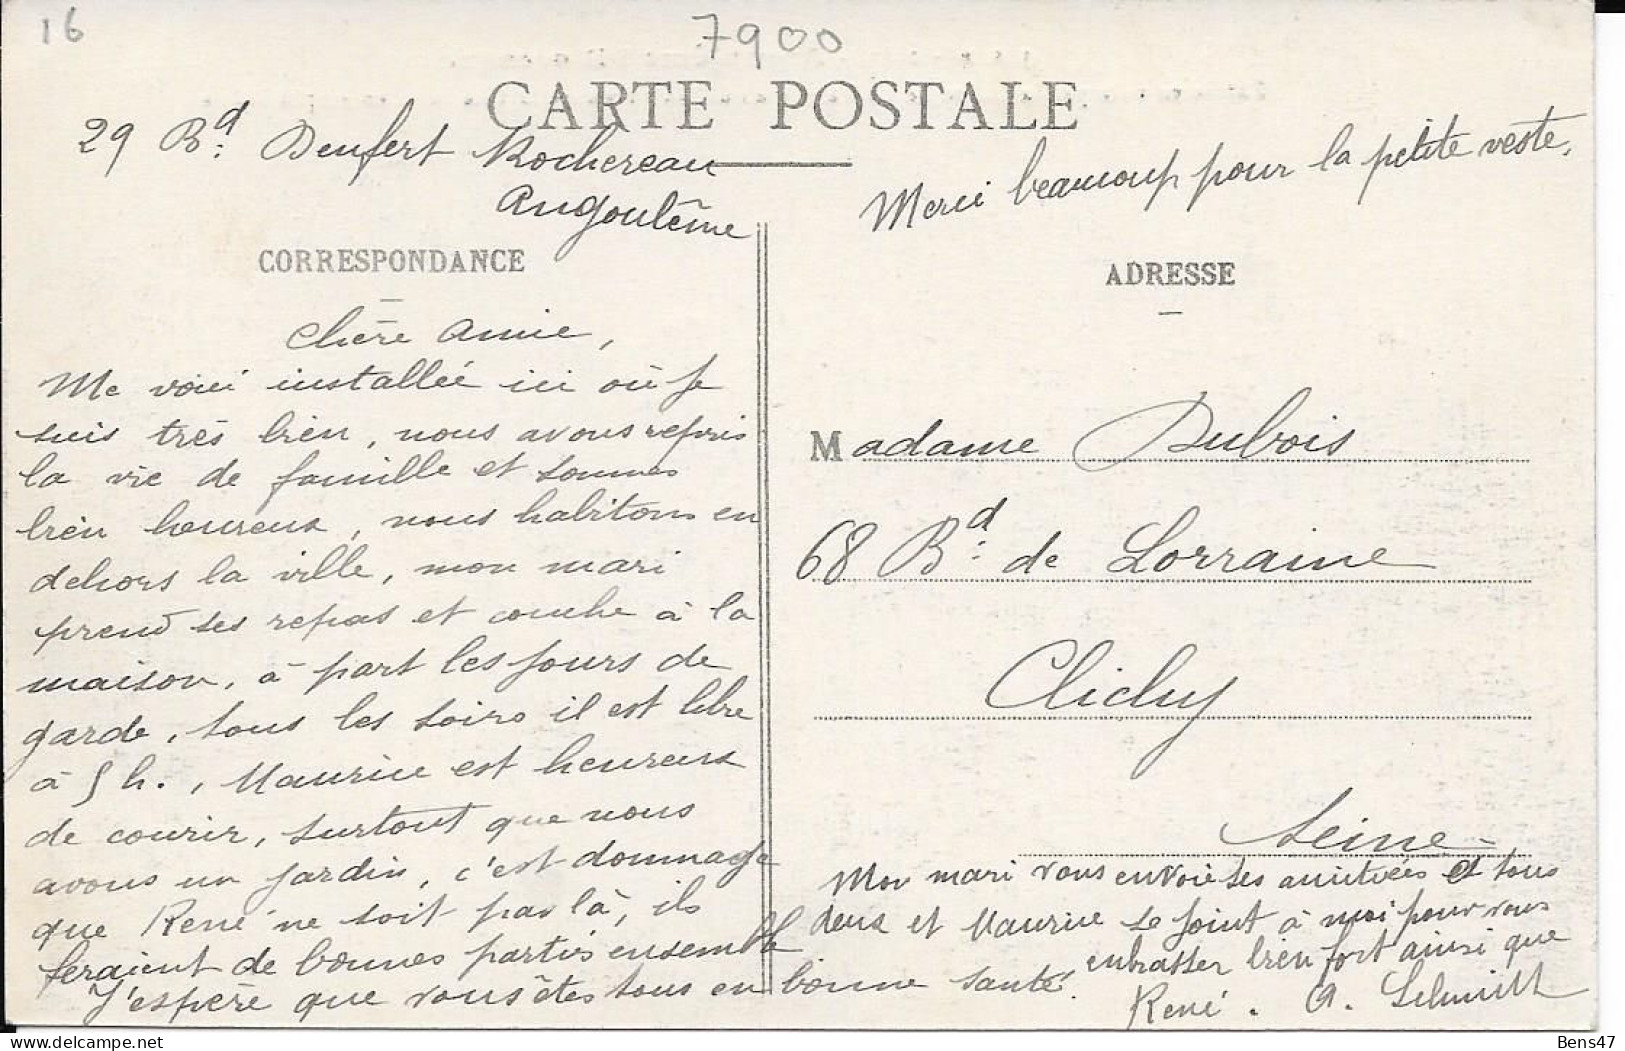 16
7900
CARTE POSTALE
29 Bd. Denfert Rochereau
Angoulême
Merci beaucoup pour la petite veste,
CORRESPONDANCE
Chère Amie,
Me voici installée ici où je
suis très bien, nous avons repris
la vie de famille et sommes
bien heureux, nous habitons en
dehors la ville, mon mari
prend ses repas et couche à la
maison, à part les jours de
garde, tous les soirs il est libre
à 5 h., Maurice est heureux
de courir, surtout que nous
avons un jardin, c'est dommage
que René ne soit pas là, ils
feraient de bonnes parties ensemble
J'espère que vous êtes tous en bonne santé.
ADRESSE
Madame Dubois
68 Bd. de Lorraine
Clichy
Seine
Mon mari vous envoie ses amitiées et tous
deux et Maurice se joint à moi pour vous
embrasser bien fort ainsi que
René. A. Schmitt
Bens47